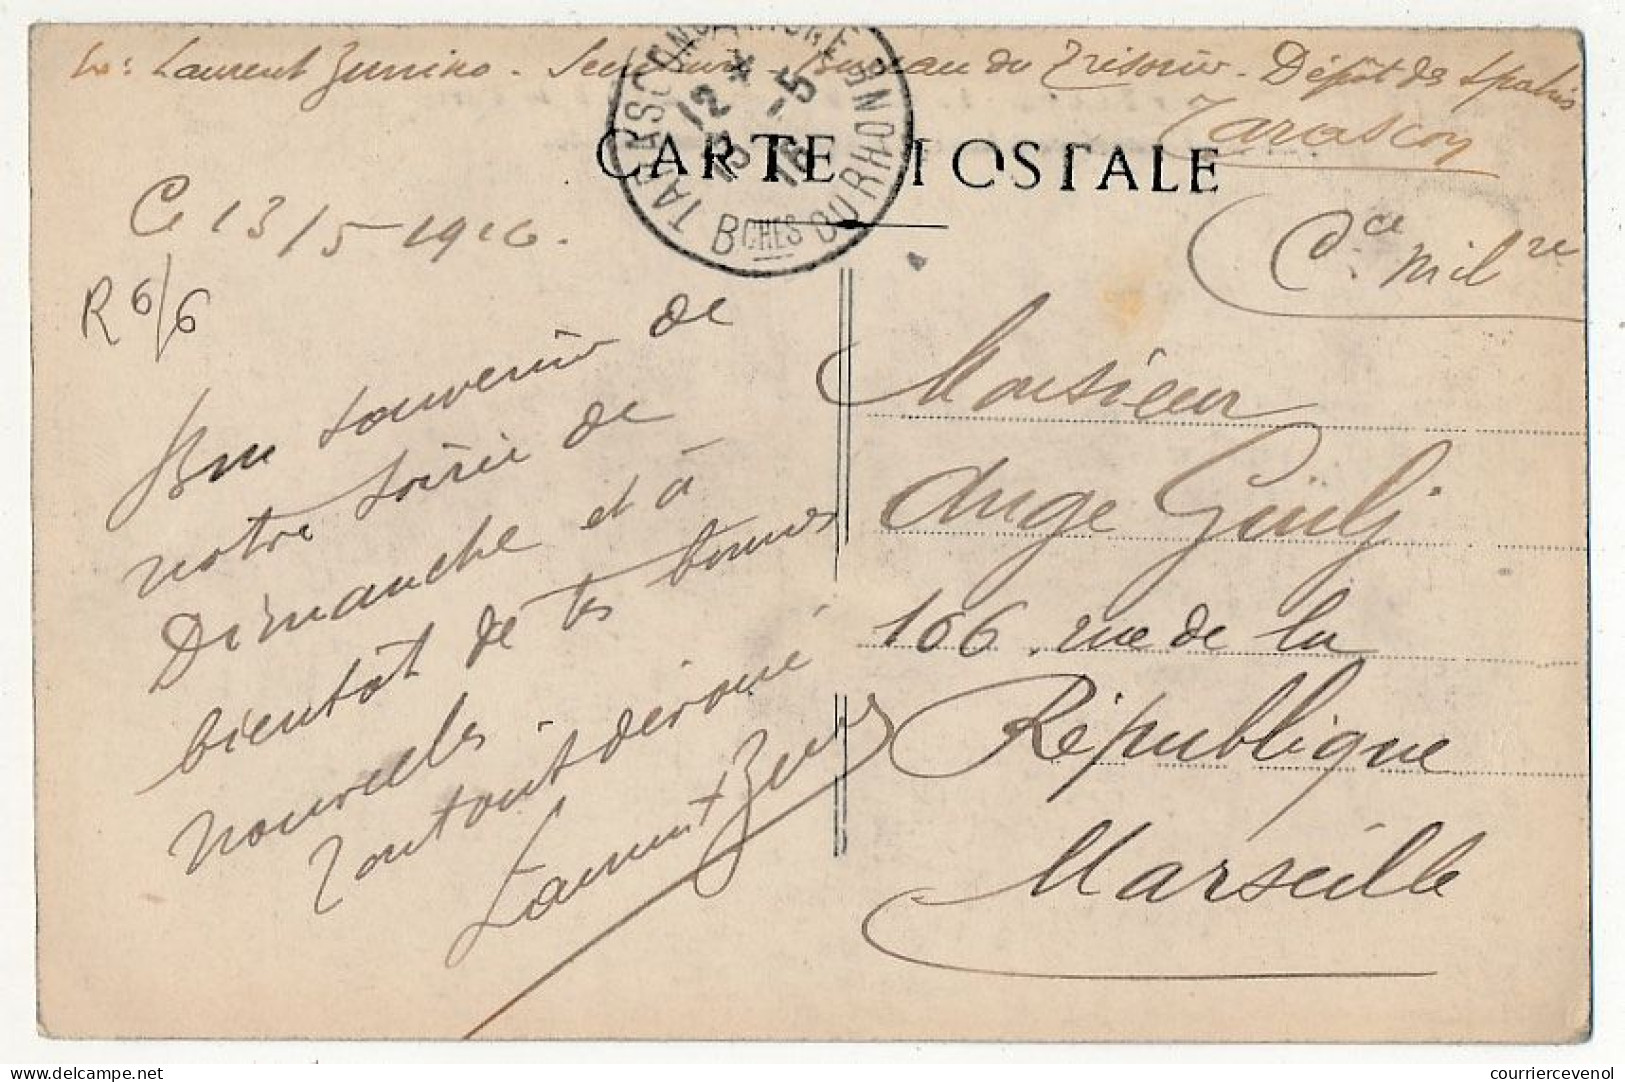 Laurent Zunino - Secrétaire - Bureau du Trésorier - Dépôt des Spahis
Tarascon
TARASCON-SUR-RHONE
12 *
13 -5
16
BCHES DU RHONE
CARTE POSTALE
Ce 13/5-1916.
R 6/6
Cce Milre
Bon souvenir de
notre soirée de
Dimanche et à
bientôt de tes bonnes
nouvelles.
Ton tout dévoué
Laurent Zunino
Monsieur
Ange Giulj
106, rue de la
République
Marseille
delcampe.net
courriercevenol